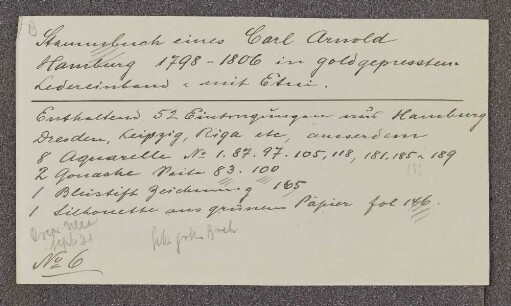 B
Stammbuch eines Carl Arnold
Hamburg 1798-1806 in goldgepresstem
Ledereinband u mit Etui.
Enthaltend 52 Eintragungen aus Hamburg
Dresden, Leipzig, Riga etc, ausserdem
8 Aquarelle No 1. 87. 97. 105, 118, 181. 185 u 189
2 Gouache Seite 83. 100
1 Bleistift Zeichnung 165
1 Silhouette aus grünem Papier fol 146.
No 6